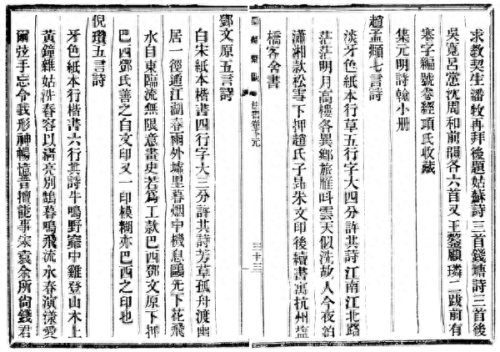 求教契生潘牧再拜後題姑蘇詩三首錢塘詩三首後
吳寬呂㦂沈周和前韻各六首又王鏊顧璘二跋前有
寒字編號叄經項氏收藏
集元明詩翰小册
趙孟頫七言詩
淡牙色紙本行草五行字大四分許其詩江南江北路
茫茫明月高樓各異鄉旅雁叫雲天似洗故人今夜泊
瀟湘款松雪下押趙氏子昂朱文印後續書寓杭州鹽
橋客舍書
三十三
鄧文原五言詩
白宋紙本楷書四行字大三分許其詩芳草孤舟渡幽
居一徑通江湖春雨外墟里暮烟中機息鷗先下花飛
水自東臨流無限意畫史若為工款巴西鄧文原下押
巴西鄧氏善之白文印又一印模糊亦巴西之印也
倪瓚五言詩
牙色紙本行楷書六行其詩牛鳴野𥧌中雞登山木上
黃鐘雜姑洗春容以瀏亮別鵠暮鳴飛流水春演漾愛
爾弦手忘令我形神暢憶昔擅能事宋袁余所尚錢君